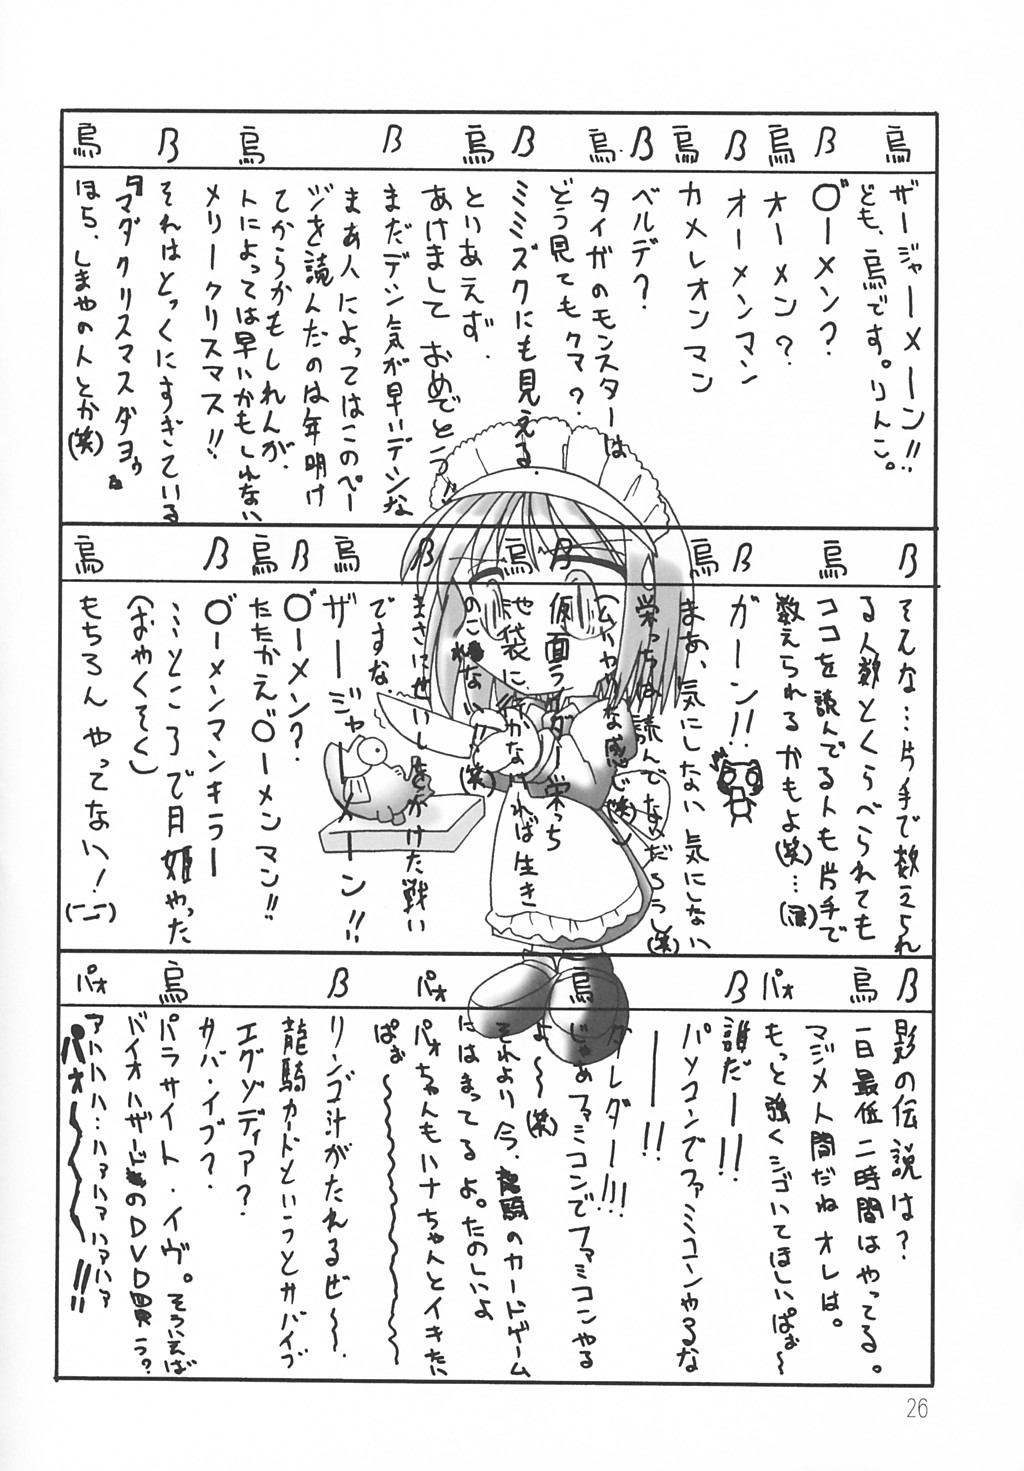 烏
ザージャーメーン!!
ども、烏です。りんこ。
β
〇゛ーメン?
烏
オーメン?
β
オーメンマン
烏
カメレオンマン
β
ベルデ?
烏
タイガのモンスターは
どう見てもクマ?
β
ミミズクにも見える
烏
とりあえず、
あけまして おめでとう!!
β
まだデンシ気が早いデンシな
烏
まあ人によってはこのペー
ジを読んだのは年明け
てからかもしれんが、
トによっては早いかもしれない
メリークリスマス!!
β
それはとっくにすぎている
烏
『マダクリスマスダヨゥ』
ほら、しまやの人とか(笑)
β
そんな…片手で数えられ
る人数とくらべられても
烏
ココを読んでるトも片手で
数えられるかもよ(笑)…(涙)
β
ガーン!!
烏
まあ、気にしない気にしない
栄っちは読んでなみだろうし(笑)
(ムハァな感じで(笑))
β
仮面ライダー栄っち
烏
池袋に行かなければ生き
のこれない!(笑)
β
まさにせいしをかけた戦い
ですな
烏
ザージャーメーン!!
β
〇゛ーメン?
烏
たたかえ〇゛ーメンマン!!
β
〇゛ーメンマンキラー
…ところで月姫やった
(おやくそく)
烏
もちろん やってない!(ーー)
β
影の伝説は?
烏
一日最低二時間はやってる。
マジメ人間だねオレは。
パォ
もっと強くシゴいてほしいぱぉ〜
β
誰だーー!!
ーーー!!
パソコンでファミコーンやるな
タレダー!!!
烏
じゃあファミコンでファミコンやる
よ〜〜(笑)
それより今、龍騎のカードゲーム
にはまってるよ。たのしいよ
パォ
パォちゃんもハナちゃんとイキたい
ぱぉ〜〜〜〜〜〜
β
リンゴ汁がたれるぜ〜〜。
龍騎カードというとサバイブ
エグゾディア?
サバ・イブ?
烏
パラサイト・イヴ。そういえば
バイオハザードのDVD買う?
パォ
アハハハ…ハァハァハァハァ
パォ〜〜〜〜!!
26